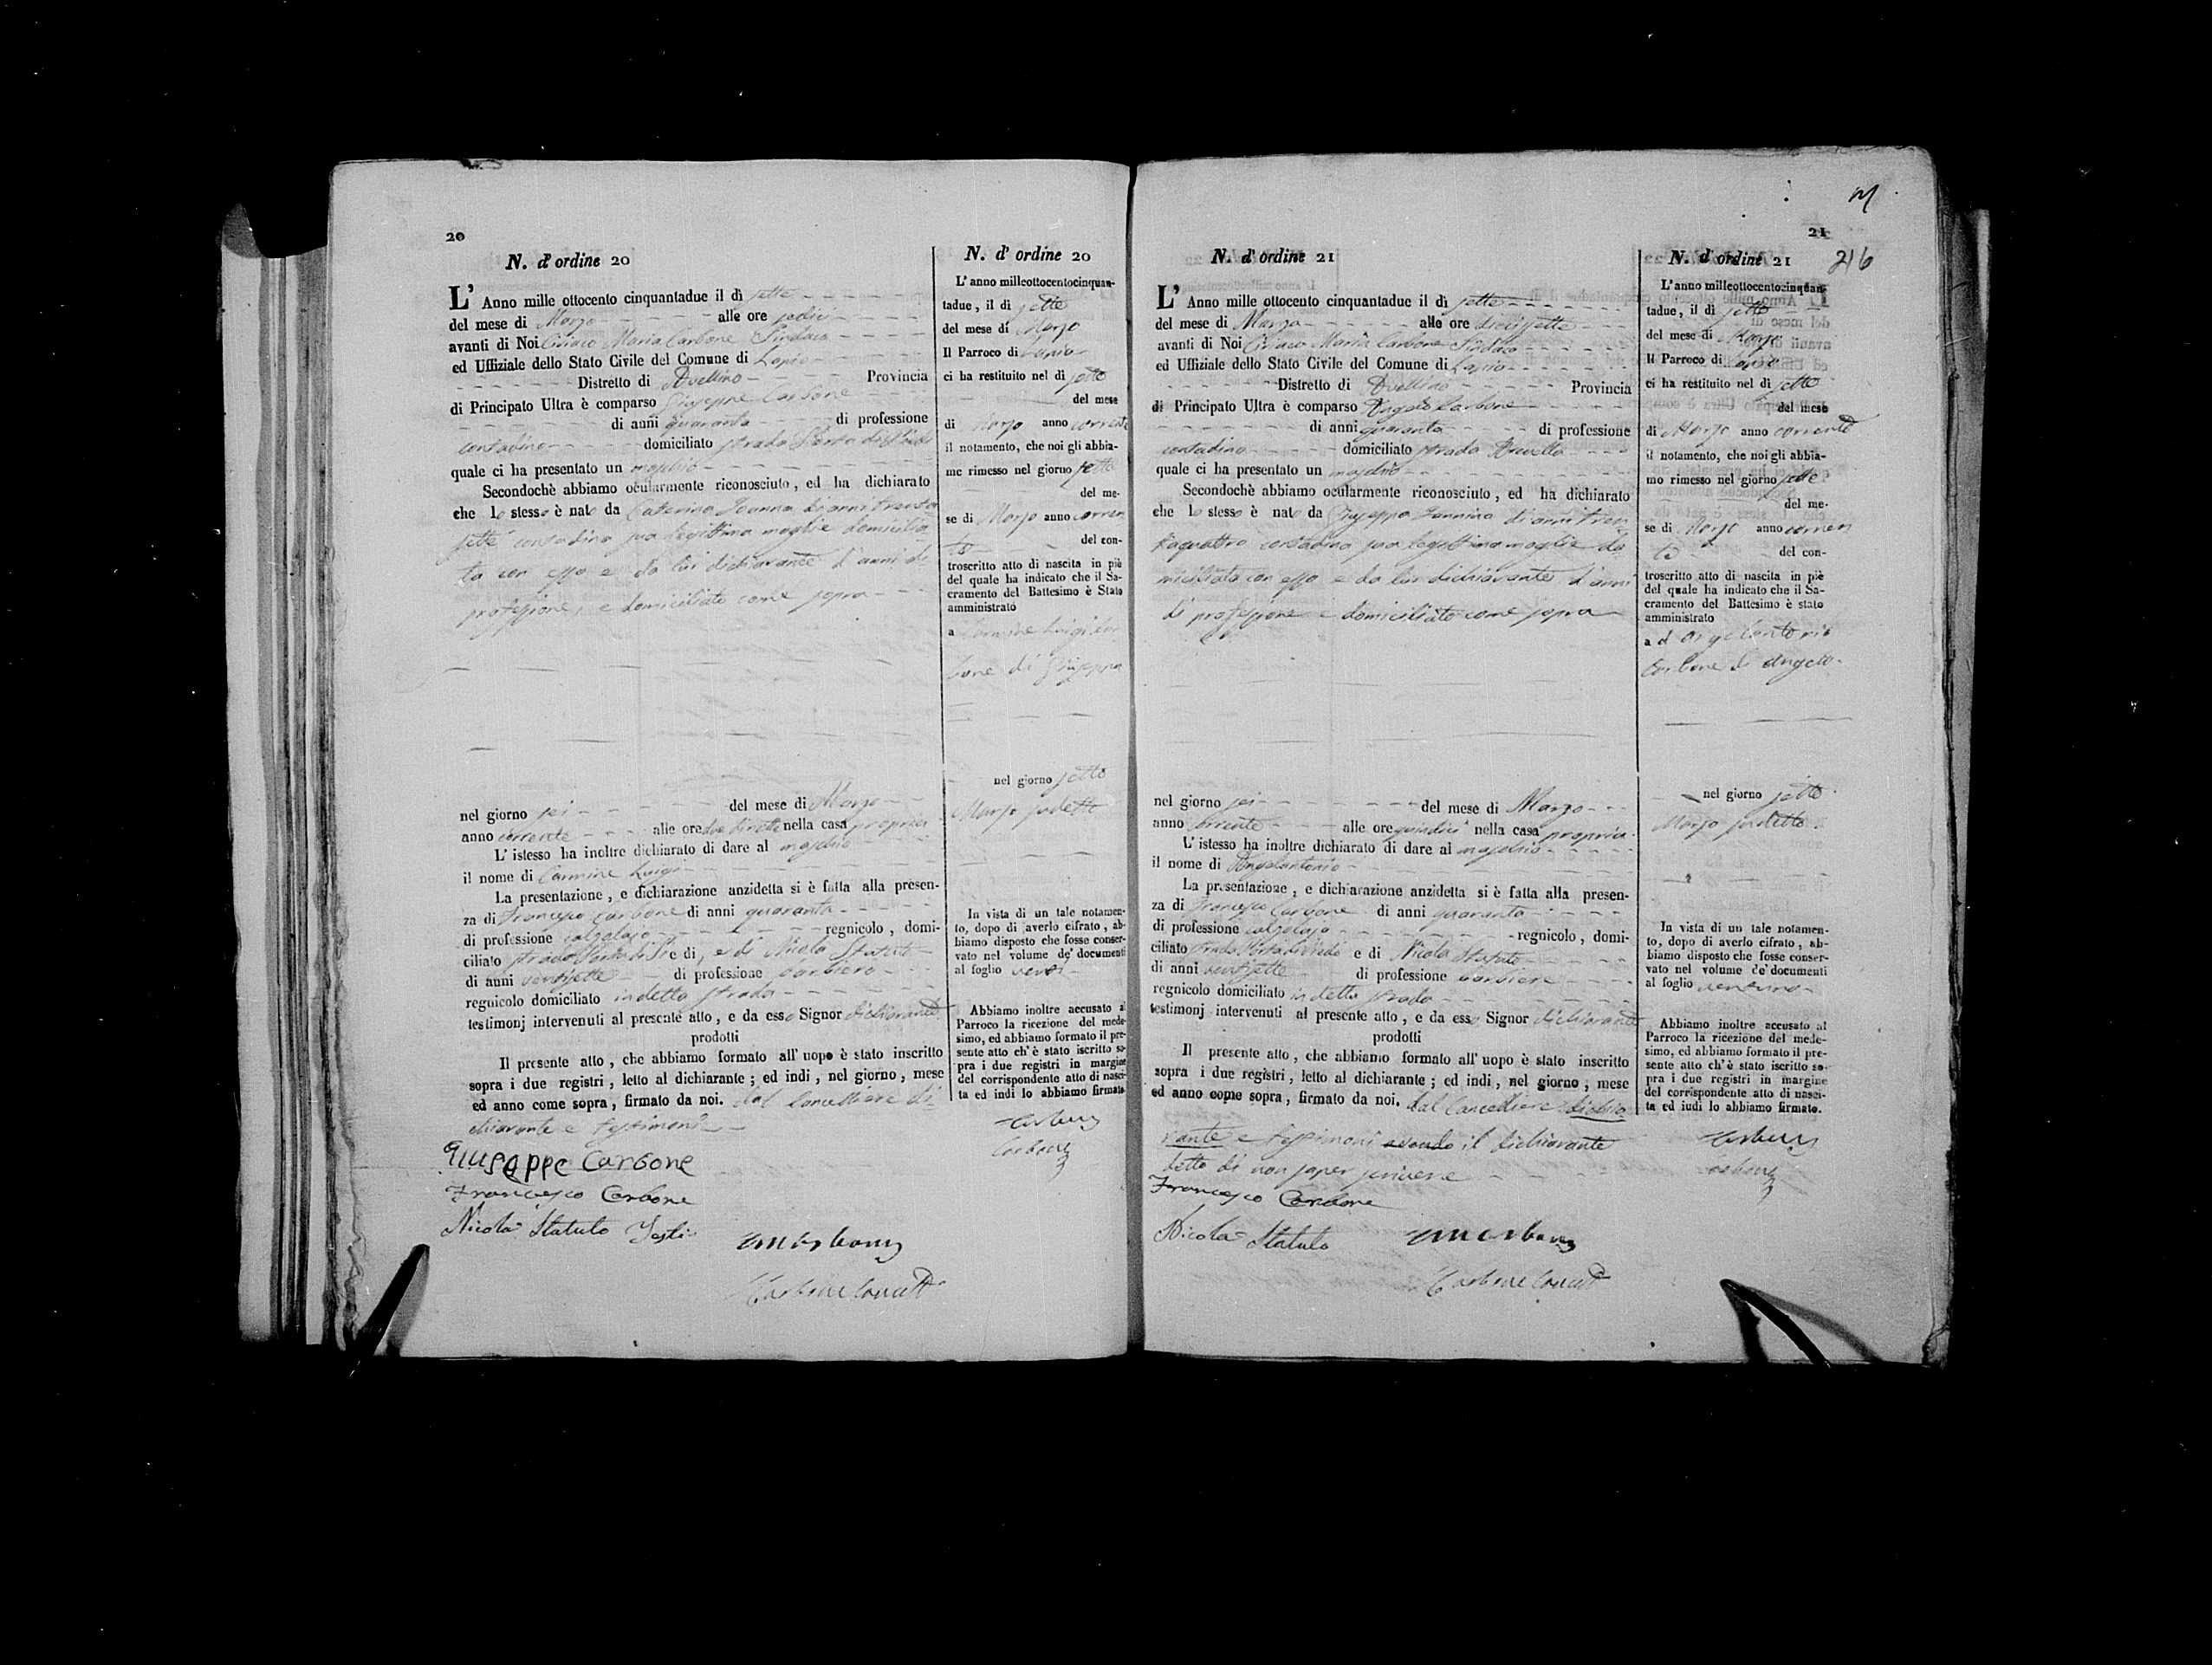 20
N. d' ordine 20
L' Anno mille ottocento cinquantadue il dì sette
del mese di Marzo alle ore sedici
avanti di Noi Ciriaco Maria Carbone Sindaco
ed Uffiziale dello Stato Civile del Comune di Lapio
Distretto di Avellino Provincia
di Principato Ultra è comparso Giuseppe Carbone
di anni quaranta di professione
contadino domiciliato strada
quale ci ha presentato un maschio
Secondochè abbiamo ocularmente riconosciuto, ed ha dichiarato
che lo stesso è nato da Caterina di anni trenta
sette contadina sua legittima moglie domicilia
ta con esso e da lui dichiarante d'anni di
professione, e domiciliato come sopra
nel giorno sei del mese di Marzo
anno corrente alle ore due nella casa propria
L' istesso ha inoltre dichiarato di dare al maschio
il nome di Carmine Luigi
La presentazione, e dichiarazione anzidetta si è fatta alla presen-
za di Francesco Carbone di anni quaranta
di professione calzolajo regnicolo, domi-
ciliato strada e di Nicola Statuto
di anni ventisette di professione barbiere
regnicolo domiciliato in detta strada
testimonj intervenuti al presente atto, e da esso Signor dichiarante
prodotti
Il presente atto, che abbiamo formato all' uopo è stato inscritto
sopra i due registri, letto al dichiarante; ed indi, nel giorno, mese
ed anno come sopra, firmato da noi. dal Cancelliere di
chiarante e testimoni
Giuseppe Carbone
Francesco Carbone
Nicola Statuto
N. d' ordine 20
L' anno milleottocentocinquan-
tadue, il dì sette
del mese di Marzo
Il Parroco di Lapio
ci ha restituito nel dì sette
del mese
di Marzo anno corrente
il notamento, che noi gli abbia-
mo rimesso nel giorno sette
del me-
se di Marzo anno corren
te del con-
troscritto atto di nascita in piè
del quale ha indicato che il Sa-
cramento del Battesimo è Stato
amministrato
a Carmine Luigi Car
bone di Giuseppe
nel giorno sette
Marzo sudetto
In vista di un tale notamen-
to, dopo di averlo cifrato, ab-
biamo disposto che fosse conser-
vato nel volume de' documenti
al foglio venti
Abbiamo inoltre accusato al
Parroco la ricezione del mede-
simo, ed abbiamo formato il pre-
sente atto ch' è stato iscritto so-
pra i due registri in margine
del corrispondente atto di nasci-
ta ed indi lo abbiamo firmato.
21
216
N. d' ordine 21
L' Anno mille ottocento cinquantadue il dì sette
del mese di Marzo alle ore diecisette
avanti di Noi Ciriaco Maria Carbone Sindaco
ed Uffiziale dello Stato Civile del Comune di Lapio
Distretto di Avellino Provincia
di Principato Ultra è comparso Angelo Carbone
di anni quaranta di professione
contadino domiciliato strada
quale ci ha presentato un maschio
Secondochè abbiamo ocularmente riconosciuto, ed ha dichiarato
che lo stesso è nato da Giuseppa Iannino di anni tren
taquattro contadina sua legittima moglie do
miciliata con esso e da lui dichiarante d'anni
di professione e domiciliato come sopra
nel giorno sei del mese di Marzo
anno corrente alle ore quindici nella casa propria
L' istesso ha inoltre dichiarato di dare al maschio
il nome di Angelantonio
La presentazione, e dichiarazione anzidetta si è fatta alla presen-
za di Francesco Carbone di anni quaranta
di professione calzolajo regnicolo, domi-
ciliato strada e di Nicola Statuto
di anni ventisette di professione barbiere
regnicolo domiciliato in detta strada
testimonj intervenuti al presente atto, e da esso Signor dichiarante
prodotti
Il presente atto, che abbiamo formato all' uopo è stato inscritto
sopra i due registri, letto al dichiarante; ed indi, nel giorno, mese
ed anno come sopra, firmato da noi. dal Cancelliere dichia
rante e testimoni avendo il dichiarante
detto di non saper scrivere
Francesco Carbone
Nicola Statuto
N. d' ordine 21
L' anno milleottocentocinquan-
tadue, il dì sette
del mese di Marzo
Il Parroco di Lapio
ci ha restituito nel dì sette
del mese
di Marzo anno corrente
il notamento, che noi gli abbia-
mo rimesso nel giorno sette
del me-
se di Marzo anno corren
te del con-
troscritto atto di nascita in piè
del quale ha indicato che il Sa-
cramento del Battesimo è stato
amministrato
a d Angelantonio
Carbone di Angelo
nel giorno sette
Marzo sudetto
In vista di un tale notamen-
to, dopo di averlo cifrato, ab-
biamo disposto che fosse conser-
vato nel volume de' documenti
al foglio ventuno
Abbiamo inoltre accusato al
Parroco la ricezione del mede-
simo, ed abbiamo formato il pre-
sente atto ch' è stato iscritto so-
pra i due registri in margine
del corrispondente atto di nasci-
ta ed indi lo abbiamo firmato.